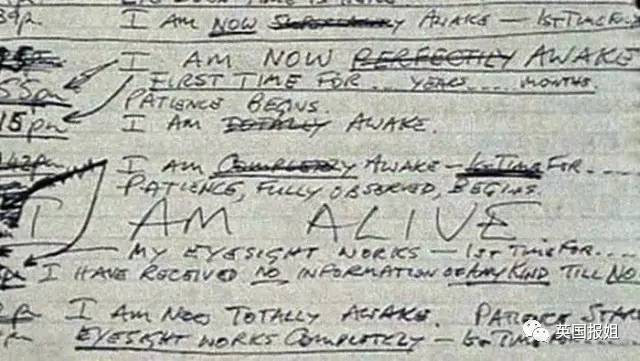 I AM NOW SUPERLATIVELY AWAKE — 1ST TIME FOR
I AM NOW PERFECTLY AWAKE
55pm FIRST TIME FOR ... YEARS .... MONTHS
PATIENCE BEGINS.
15pm I AM TOTALLY AWAKE.
I AM COMPLETELY AWAKE — 1ST TIME FOR....
PATIENCE, FULLY OBSERVED, BEGINS.
I AM ALIVE
MY EYESIGHT WORKS — 1ST TIME FOR....
I HAVE RECEIVED NO INFORMATION OF ANY KIND TILL NO
I AM NOW TOTALLY AWAKE. PATIENCE STAR
EYESIGHT WORKS COMPLETELY — 1ST TIME
英国报姐